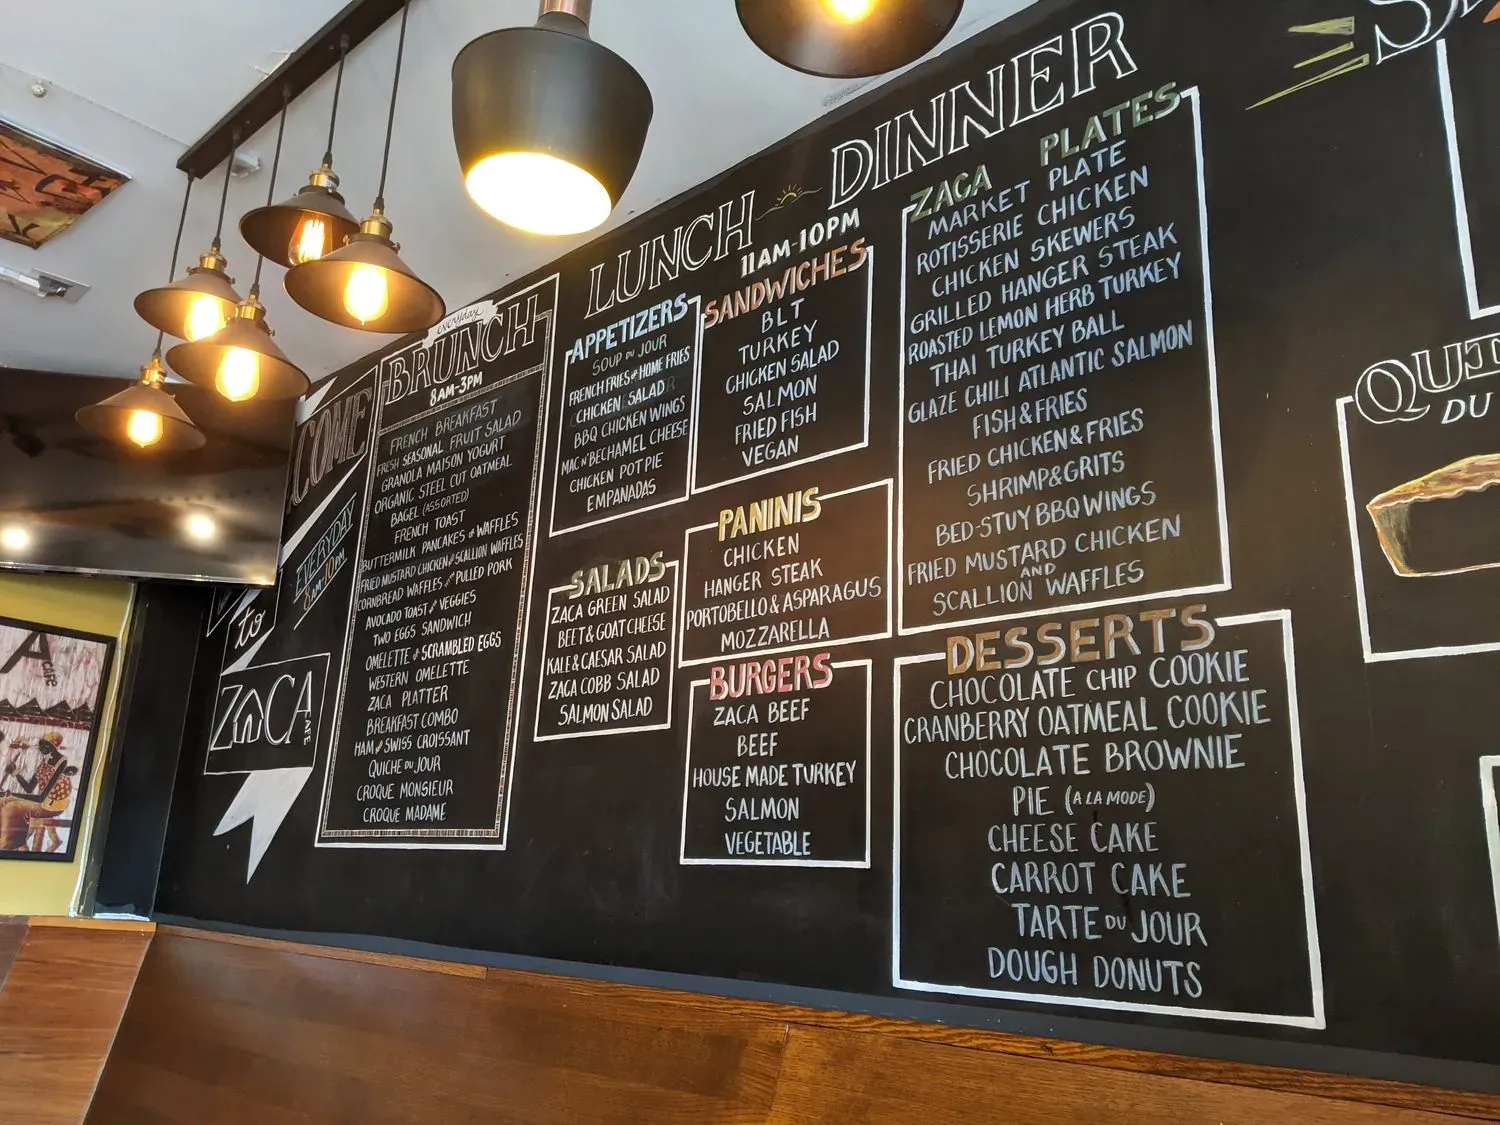 COME
to
EVERYDAY
8AM-10PM
ZACA
CAFE
everyday
BRUNCH
8AM-3PM
FRENCH BREAKFAST
FRESH SEASONAL FRUIT SALAD
GRANOLA MAISON YOGURT
ORGANIC STEEL CUT OATMEAL
BAGEL (ASSORTED)
FRENCH TOAST
BUTTERMILK PANCAKES or WAFFLES
FRIED MUSTARD CHICKEN and SCALLION WAFFLES
CORNBREAD WAFFLES and PULLED PORK
AVOCADO TOAST and VEGGIES
TWO EGGS SANDWICH
OMELETTE or SCRAMBLED EGGS
WESTERN OMELETTE
ZACA PLATTER
BREAKFAST COMBO
HAM and SWISS CROISSANT
QUICHE DU JOUR
CROQUE MONSIEUR
CROQUE MADAME
LUNCH - DINNER
11AM-10PM
APPETIZERS
SOUP DU JOUR
FRENCH FRIES or HOME FRIES
CHICKEN SALAD
BBQ CHICKEN WINGS
MAC N' BECHAMEL CHEESE
CHICKEN POT PIE
EMPANADAS
SALADS
ZACA GREEN SALAD
BEET & GOAT CHEESE
KALE & CAESAR SALAD
ZACA COBB SALAD
SALMON SALAD
SANDWICHES
BLT
TURKEY
CHICKEN SALAD
SALMON
FRIED FISH
VEGAN
PANINIS
CHICKEN
HANGER STEAK
PORTOBELLO & ASPARAGUS
MOZZARELLA
BURGERS
ZACA BEEF
BEEF
HOUSE MADE TURKEY
SALMON
VEGETABLE
ZACA PLATES
MARKET PLATE
ROTISSERIE CHICKEN
CHICKEN SKEWERS
GRILLED HANGER STEAK
ROASTED LEMON HERB TURKEY
THAI TURKEY BALL
GLAZE CHILI ATLANTIC SALMON
FISH & FRIES
FRIED CHICKEN & FRIES
SHRIMP & GRITS
BED-STUY BBQ WINGS
FRIED MUSTARD CHICKEN
AND
SCALLION WAFFLES
DESSERTS
CHOCOLATE CHIP COOKIE
CRANBERRY OATMEAL COOKIE
CHOCOLATE BROWNIE
PIE (A LA MODE)
CHEESE CAKE
CARROT CAKE
TARTE DU JOUR
DOUGH DONUTS
QUI
DU